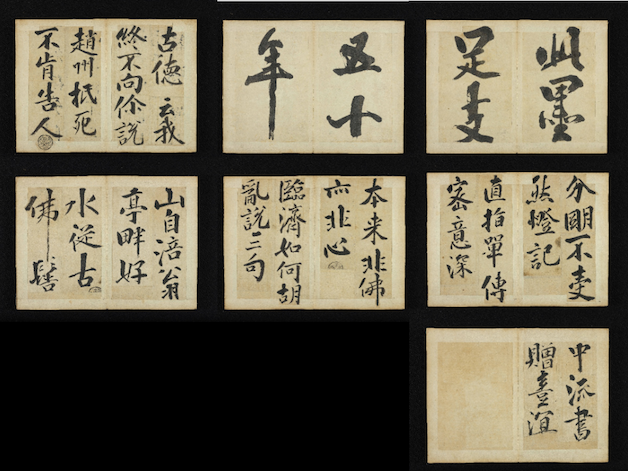 此墨
足支
五十
年
古德云我
終不向你說
趙州抵死
不肯告人
分明不受
然燈記
直指單傳
密意深
本来非佛
亦非心
臨濟如何胡
亂說三句
山自涪翁
亭畔好
水從古
佛髻
中流書
贈喜